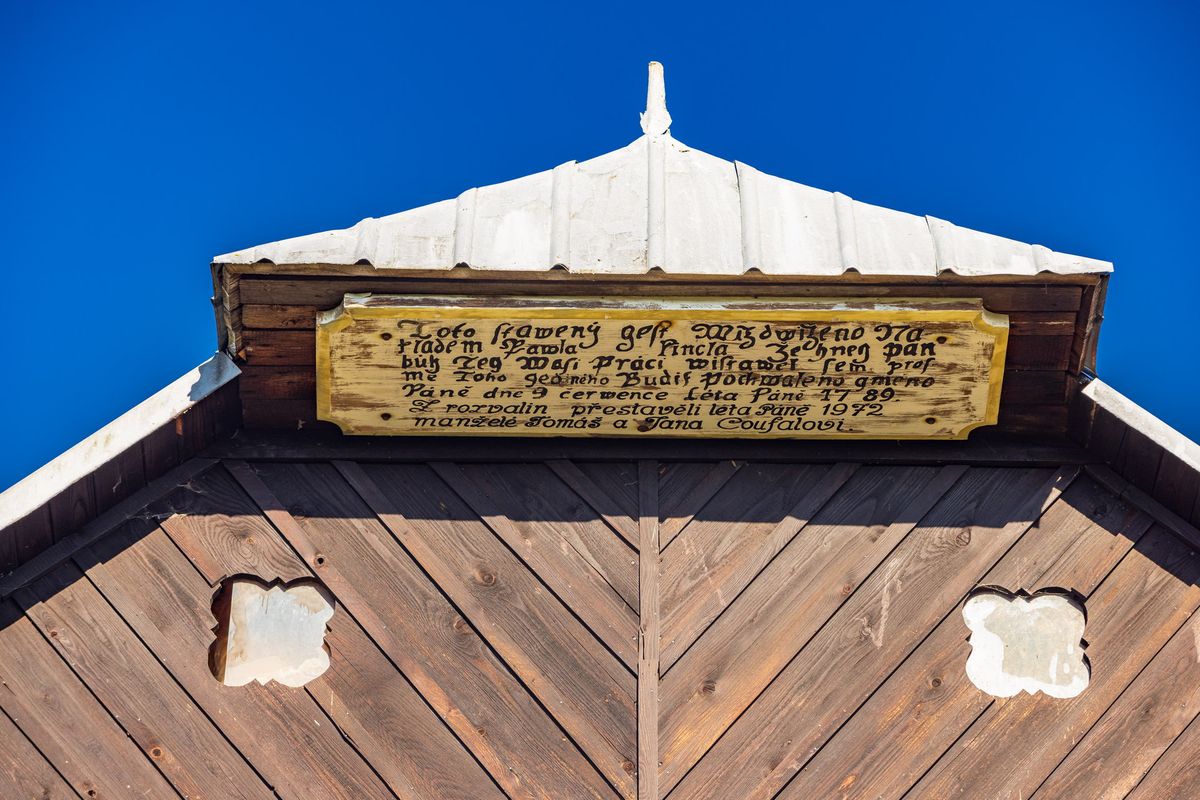 Toto stawený gest Wizdwiženo Na
kladem Pawla Pincla Ze Ohneg pan
buh Teg Wasi Práci wistawet sem pros
mě Toho gednéno Budiž Pochwáleno gmeno
Páně dne 9 cerwence Léta Páně 17 89.
Z rozvalin přestavěli léta Páně 1972
manželé Tomáš a Jana Coufalovi